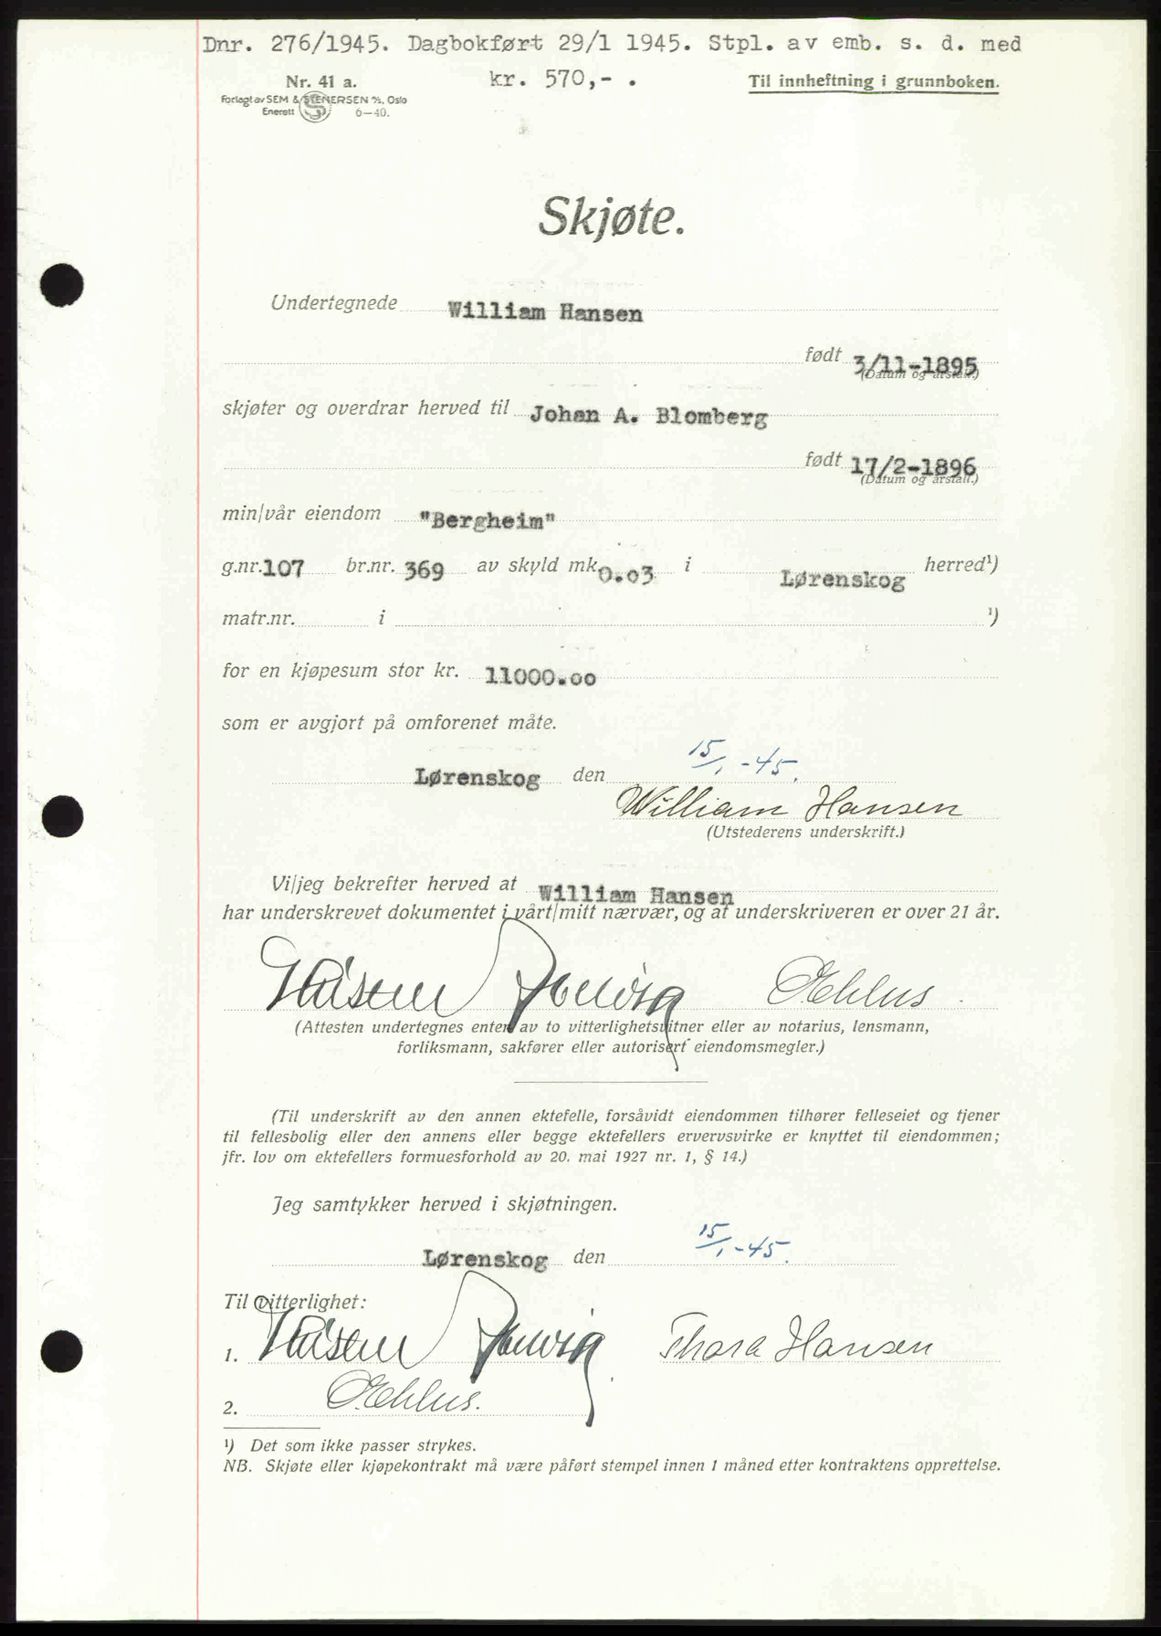 Dnr. 276/1945. Dagbokført 29/1 1945. Stpl. av emb. s. d. med
kr. 570,- .
Nr. 41 a.
Til innheftning i grunnboken.
Forlagt av SEM & STENERSEN A/S, Oslo
Enerett 6—40.
Skjøte.
Undertegnede William Hansen
født 3/11-1895
(Datum og årstall.)
skjøter og overdrar herved til Johan A. Blomberg
født 17/2-1896
(Datum og årstall.)
min/vår eiendom "Bergheim"
g.nr. 107 br.nr. 369 av skyld mk. 0.03 i Lørenskog herred¹)
matr.nr. i ¹)
for en kjøpesum stor kr. 11000.00
som er avgjort på omforenet måte.
Lørenskog den 15/1-45.
William Hansen
(Utstederens underskrift.)
Vi/jeg bekrefter herved at William Hansen
har underskrevet dokumentet i vårt/mitt nærvær, og at underskriveren er over 21 år.
(Attesten undertegnes enten av to vitterlighetsvitner eller av notarius, lensmann,
forliksmann, sakfører eller autorisert eiendomsmegler.)
(Til underskrift av den annen ektefelle, forsåvidt eiendommen tilhører felleseiet og tjener
til fellesbolig eller den annens eller begge ektefellers ervervsvirke er knyttet til eiendommen;
jfr. lov om ektefellers formuesforhold av 20. mai 1927 nr. 1, § 14.)
Jeg samtykker herved i skjøtningen.
Lørenskog den 15/1-45.
Til vitterlighet:
1. Thora Hansen
2.
¹) Det som ikke passer strykes.
NB. Skjøte eller kjøpekontrakt må være påført stempel innen 1 måned etter kontraktens opprettelse.